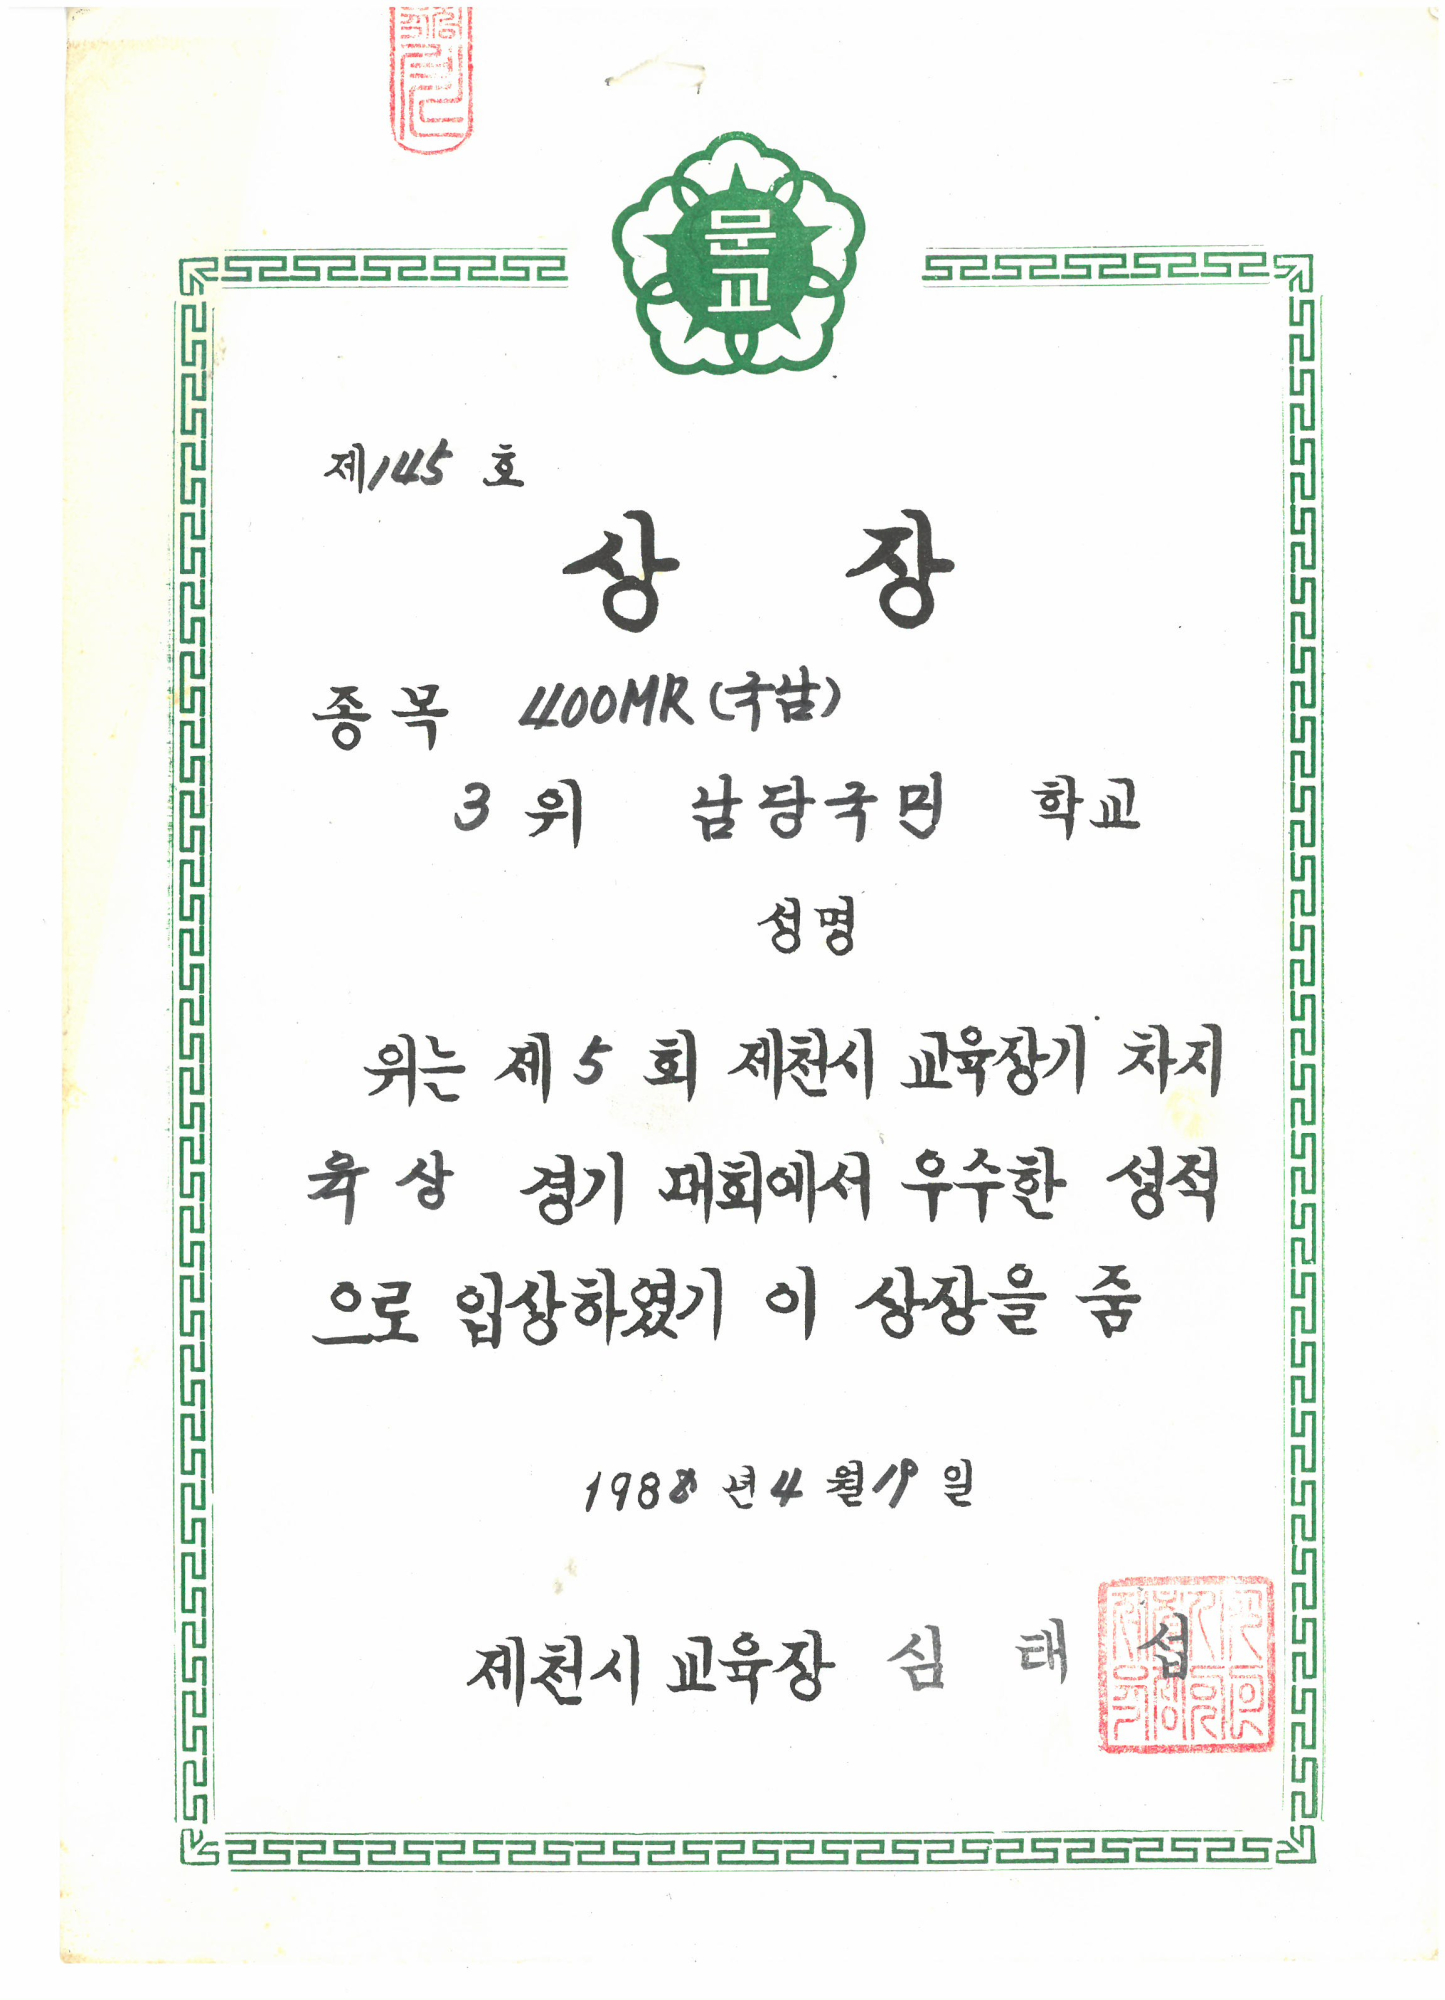 문교
제145 호
상 장
종목 400MR (국남)
3 위 남당국민 학교
성명
위는 제 5 회 제천시 교육장기 차지
육상 경기 대회에서 우수한 성적
으로 입상하였기 이 상장을 줌
1988년 4월 19일
제천시 교육장 심 태 섭